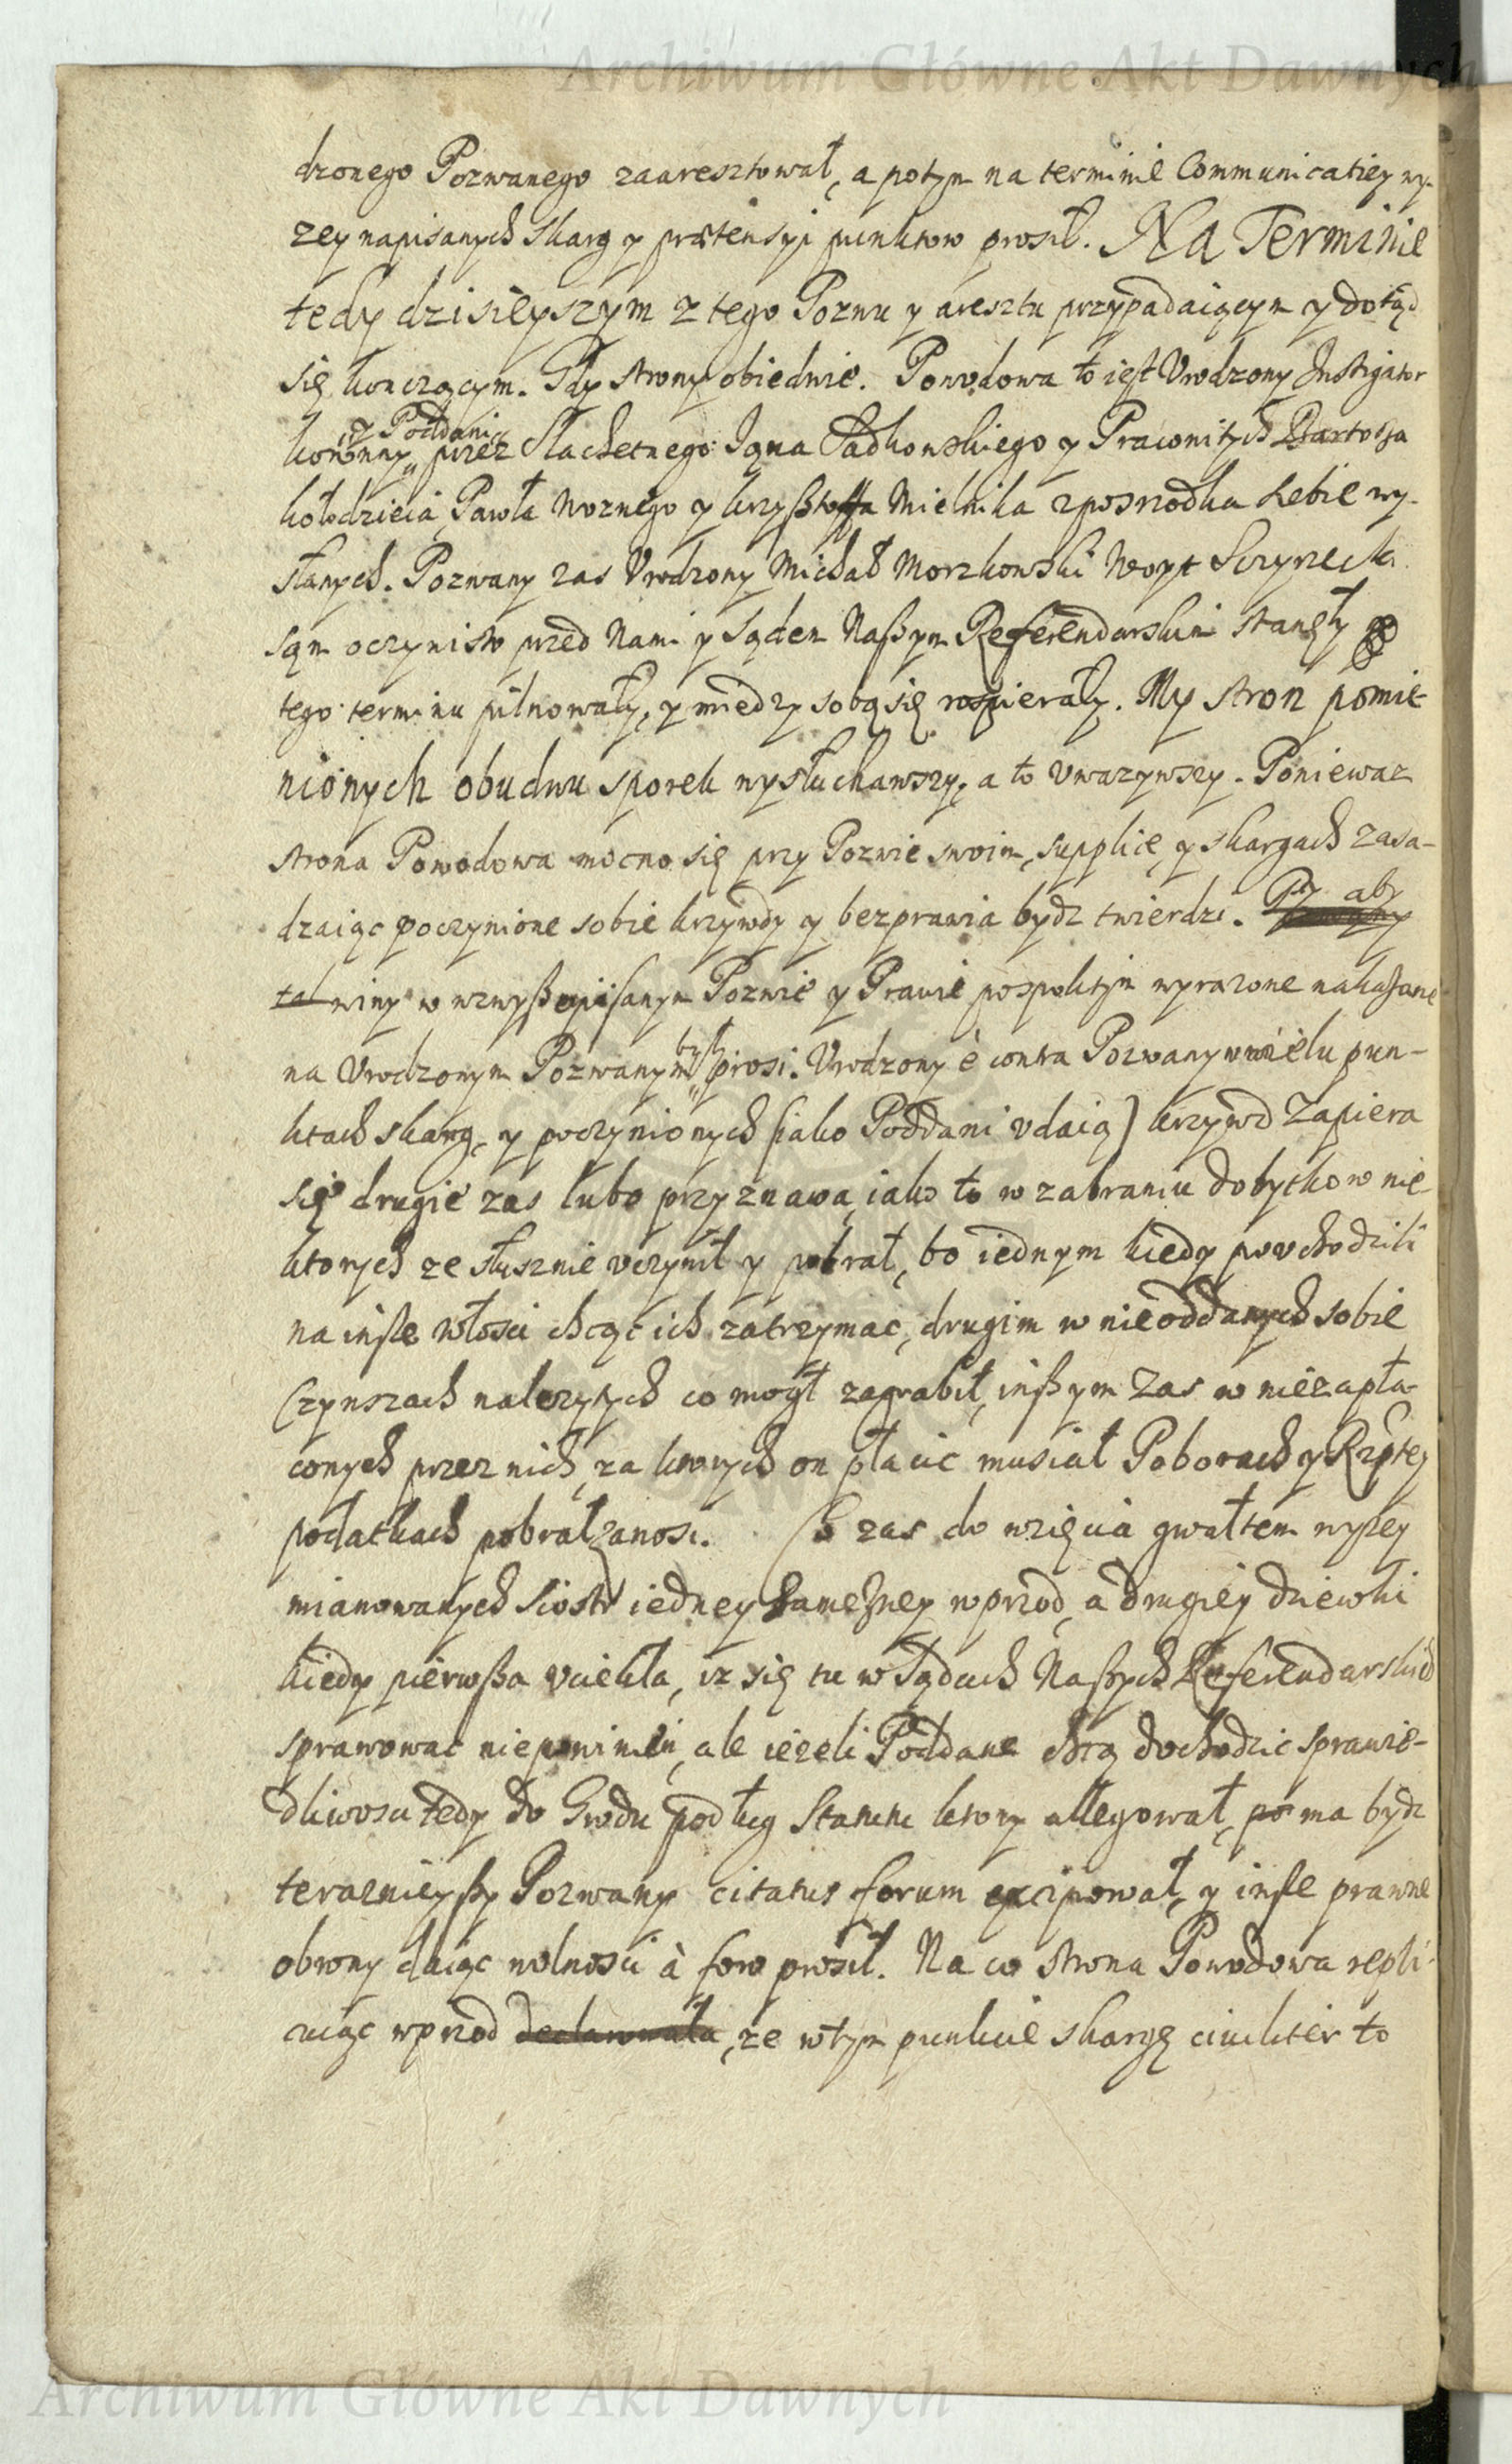 Archiwum Główne Akt Dawnych
dzonego Pozwanego zaaresztował, a potym na terminie Communicatiey wy-
zey napisanych skarg y prætensyi punktow prosił. Na Terminie
tedy dzisieyszym z tego Pozwu y aresztu przypadaiącym y dotąd
się konczącym. Gdy strony obiedwie. Powodowa to iest Vrodzony Instigator
y Poddani
koronny przez Slachetnego Sadkowskiego y Pracowitych Bartosza
kołodzieia Pawła Woznego y krzysztoffa Mielnika zposrzodka siebie wy-
słanych. Pozwany zas Vrodzony Michał Morzkowski Woyt Scryrecki
sąm oczywisto przed Nami y Sądem Naszym Referendarskim stanęły y
tego terminu pilnowały, y miedzy sobą się rospierały. My stron pomie-
nionych obudwu sporek wysłuchawszy, a to vwazywszy. Poniewaz
strona Powodowa mocno się przy Pozwie swoim, supplice, y skargach zasa-
dzaiąc poczynione sobie krzywdy y bezprawia bydz twierdzi. Gdy aby
winy w wzwysz opisanym Pozwie y Prawie pospolitym wyrazone nakazane
były
na Vrodzonym Pozwanym prosi. Vrodzony è contra Pozwany w wielu pun-
ktach skarg, y poczynionych (iako Poddani vdaią) krzywd zapiera
się drugie zas lubo przyznawa, iako to w zabraniu dobytkow nie-
ktorych ze słusznie vczynił y pobrał, bo iednym kiedy powchodzili
na insze włosci chcąc ich zatrzymac, drugim w nieoddanych sobie
Czynszach nalezytych co mogł zagrabił, inszym zas w niezapła-
conych przez nich, za ktorych on płacic musiał Poborach y Rzptey
podatkach pobrał zanosi. Co zas do wzięcia gwałtem wyzey
mianowanych Siostr iedney zamęzney wprzod, a drugiey dziewki
kiedy pierwsza vciekła, iz się tu w Sądach Naszych Referendarskich
sprawowac niepowinien, ale iezeli Poddane chcą dochodzic sprawie-
dliwosci tedy do Grodu podług Statutu ktory allegował, po ma bydz
teraznieyszy Pozwany citatus forum excipował, y insze prawne
obrony daiąc wolnosci à foro prosił. Na co strona Powodowa repli-
cuiąc wprzod declarowała, ze wtym punkcie skargę ciuiliter to
Archiwum Główne Akt Dawnych